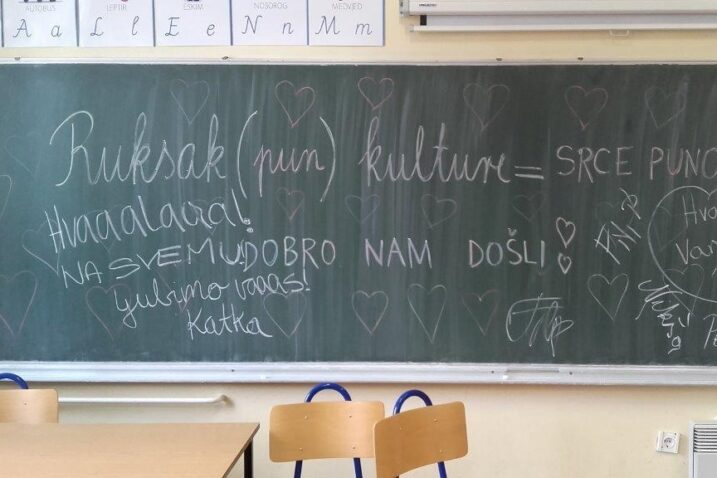 AUTOBUS LEPTIR ESKIM NOSOROG MEDVJED
A a L l E e N n M m
Ruksak (pun) kulture = SRCE PUNO
Hvaaalaaaa!
NA SVEMU! DOBRO NAM DOŠLI!
ljubimo vaaas!
Katka
Hva
Vam